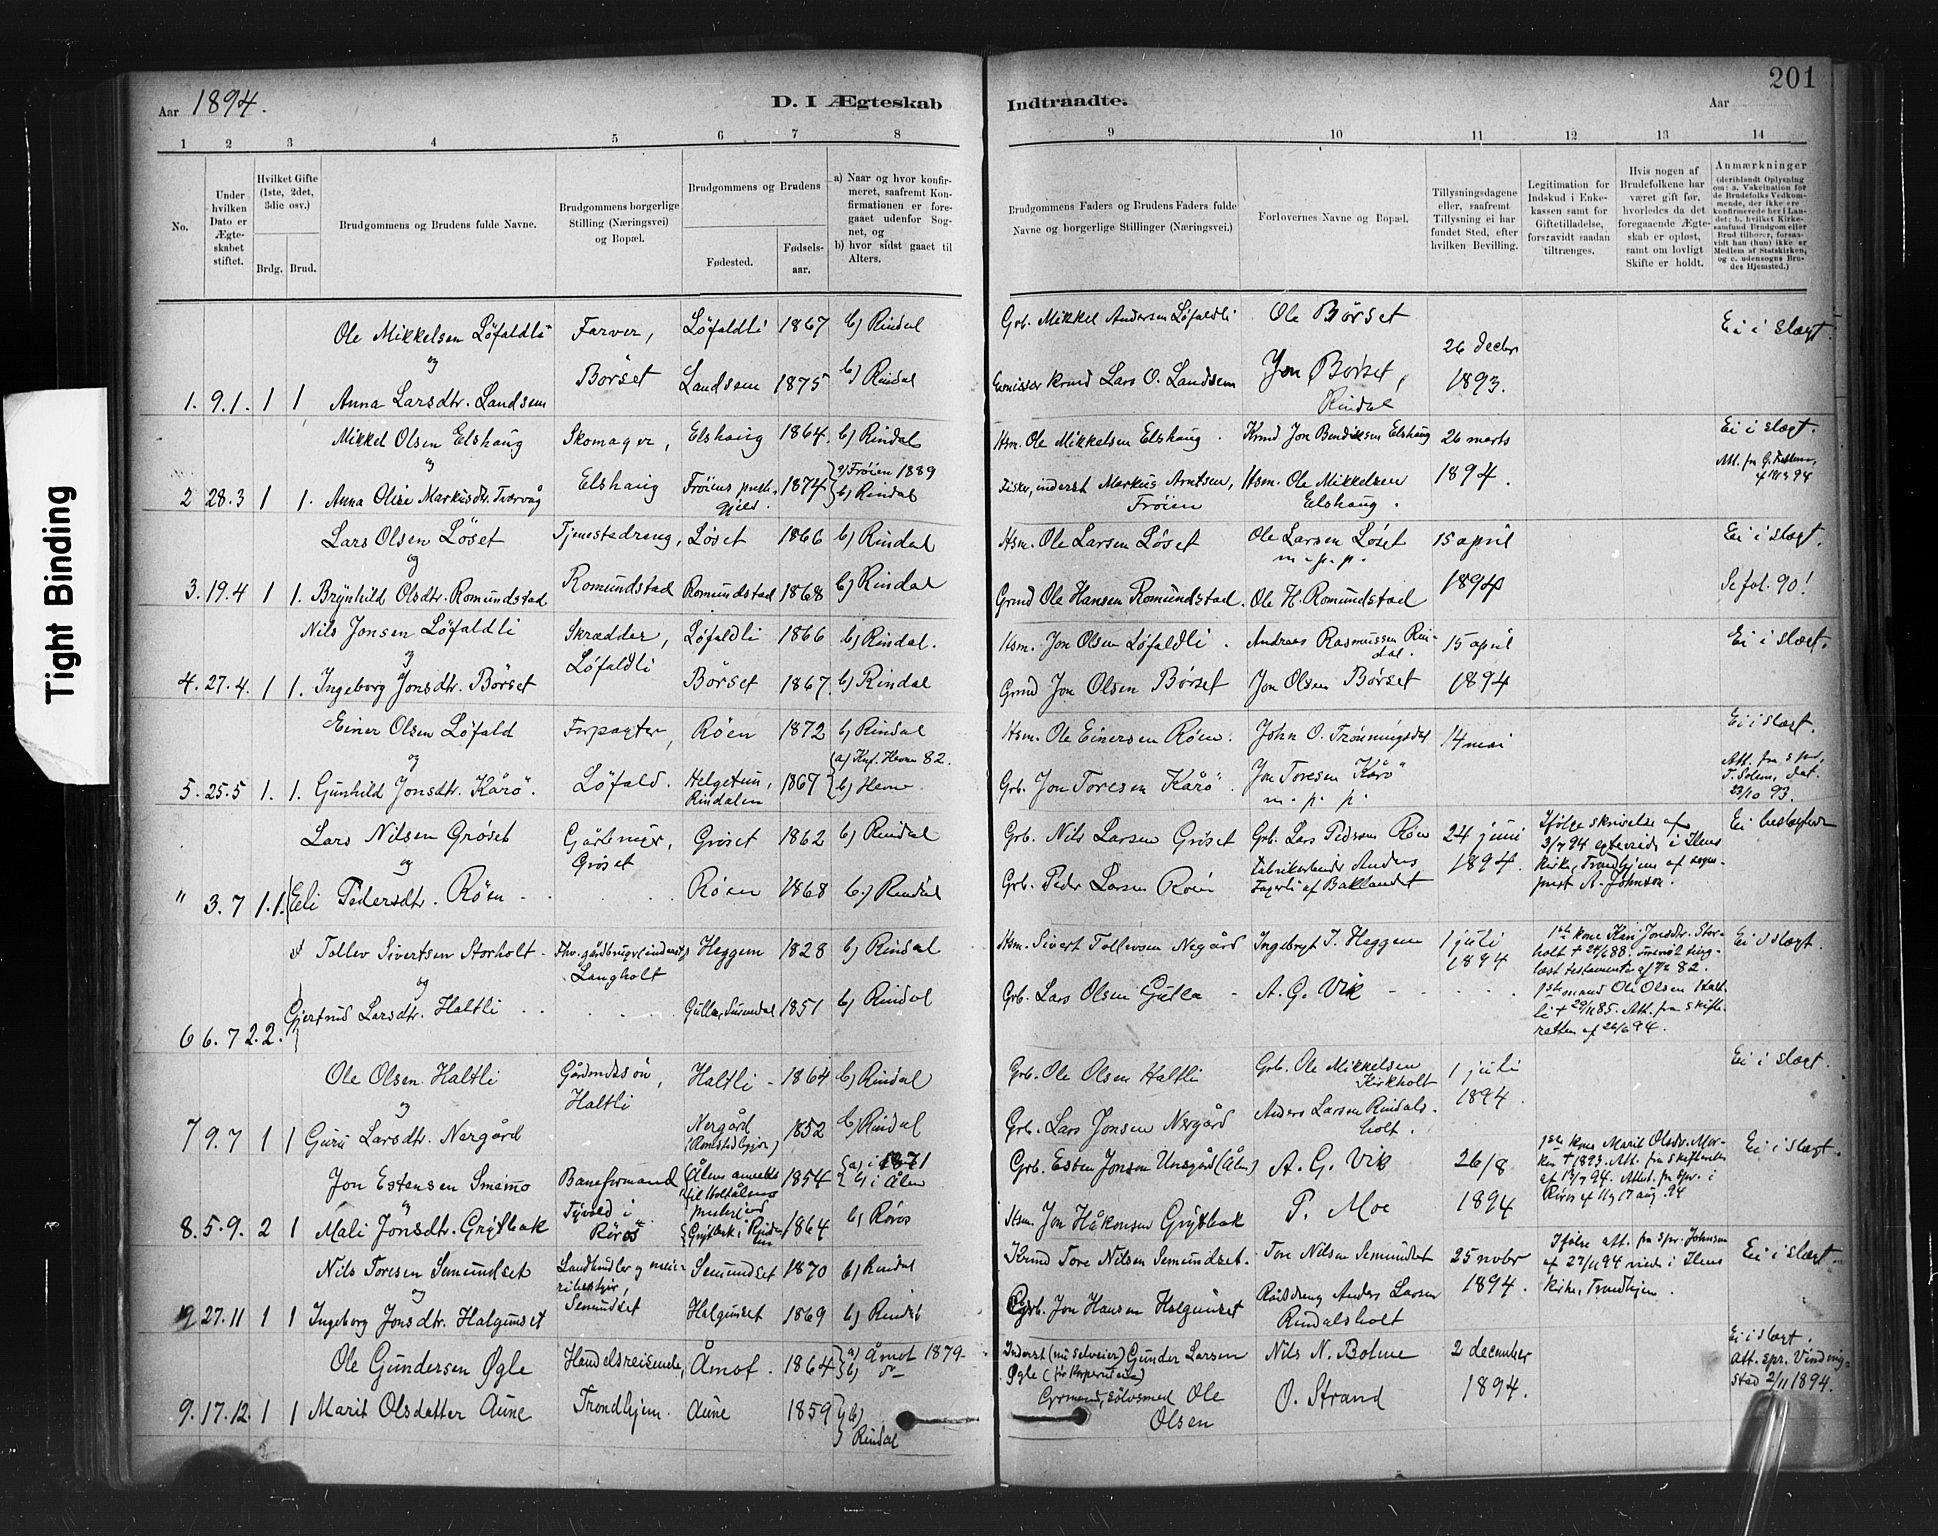 201
Aar 1894.
D. I Ægteskab
Indtraadte.
Aar
1 2 3 4 5 6 7 8 9 10 11 12 13 14
No.
Under hvilken Dato er Ægte-skabet stiftet.
Hvilket Gifte (1ste, 2det, 3die osv.)
Brdg. Brud.
Brudgommens og Brudens fulde Navne.
Brudgommens borgerlige Stilling (Næringsvei) og Bopæl.
Brudgommens og Brudens
Fødested.
Fødsels-aar.
a) Naar og hvor konfir-meret, saafremt Kon-firmationen er fore-gaaet udenfor Sog-net, og
b) hvor sidst gaaet til Alters.
Brudgommens Faders og Brudens Faders fulde Navne og borgerlige Stillinger (Næringsvei.)
Forlovernes Navne og Bopæl.
Tillysningsdagene eller, saafremt Tillysning ei har fundet Sted, efter hvilken Bevilling.
Legitimation for Indskud i Enke-kassen samt for Giftetilladelse, forsaavidt saadan tiltrænges.
Hvis nogen af Brudefolkene har været gift før, hvorledes da det foregaaende Ægte-skab er opløst, samt om lovligt Skifte er holdt.
Anmærkninger (deriblandt Oplysning om: a. Vakcination for de Brudefolks Vedkom-mende, der ikke ere konfirmerede her i Lan-det; b. hvilket Kirke-samfund Brudgom eller Brud tilhører, forsaa-vidt han (hun) ikke er Medlem af Statskirken, og c. udensogns Bru-des Hjemsted.)
Ole Mikkelsen Löfaldli Farver, Löfaldli 1867 b) Rindal Grb. Mikkel Andersen Löfaldli Ole Børset Ei i slægt.
og Börset 26 decbr
1. 9.1. 1 1 Anna Larsdtr. Landsem Landsem 1875 b) Rindal Lars O. Landsem Jon Børset, Rindal 1893.
Mikkel Olsen Elshaug Skomager, Elshaug 1864. b) Rindal Hsm. Ole Mikkelsen Elshaug. Krmd Jon Bendiksen Elshaug 26 marts Ei i slægt.
og Elshaug a) Fröien 1889
2 28.3 1 1. Anna Olise Markusdtr. Tvervåg Fröiens prstgjeld. 1874 b) Rindal Fisker, inderst Markus Arntsen, Fröien Hsm. Ole Mikkelsen Elshaug. 1894.
Lars Olsen Löset Tjenestedreng, Löset 1866 b) Rindal Hsm. Ole Larsen Löset Ole Larsen Löset m.p.p. 15 april Ei i slægt.
og
3. 19.4 1 1. Brynhild Olsdtr. Romundstad Romundstad Romundstad 1868 b) Rindal Grmd Ole Hansen Romundstad. Ole H. Romundstad 1894 Se fol. 90!
Nils Jonsen Löfaldli Skrædder, Löfaldli 1866 b) Rindal. Hsm. Jon Olsen Löfaldli. Andreas Rasmussen Rindal. 15 april Ei i slægt.
og Löfaldli
4. 27.4. 1 1. Ingeborg Jonsdtr. Börset Börset 1867. b) Rindal Grmd Jon Olsen Börset Jon Olsen Börset 1894
Einer Olsen Löfald Forpagter, Röen 1872 b) Rindal Hsm. Ole Einersen Röen. John O. Trönningsdal 14 mai Ei i slægt.
og a) Knf. Hevne 82.
5. 25.5 1. 1. Gunhild Jonsdtr. Kårö. Löfald. Helgetun, Rindalen 1867 b) Hevne Grb. Jon Toresen Kårö Jon Toresen Kårö m.p.p. 23/10 93.
Lars Nilsen Gröset Gårbruger, Gröset Gröset 1862 b) Rindal Grb. Nils Larsen Gröset Grb. Lars Pedersen Röen 24 juni Ifölge skrivelse af 3/7 94 egteviede i Ilens kirke, Trondhjem af sogneprest A. Johnson. Ei beslægtede
og
" 3.7 1.1. Eli Pedersdtr. Röen Röen 1868 b.) Rindal Grb. Peder Larsen Röen Fabrikarbeider Anders Fagerli af Baklandet 1894.
Tollev Sivertsen Storholt Fhv. gårdbruger (inderst) Langholt Heggem 1828 b) Rindal Hsm. Sivert Tollevsen Negård Ingebrigt J. Heggem 1 juli 1894 1ste kone Kari Jonsdtr. Storholt † Ei i slægt.
og
6 6.7 2.2. Gjertrud Larsdtr. Haltli Gulla, Surendal 1851 b) Rindal Grb. Lars Olsen Gulla A. G. Vik 1ste mand Ole Olsen Haltli † Att. fra skifteretten af 26/6 94.
Ole Olsen Haltli Gårdmdssön, Haltli Haltli 1864 b) Rindal Grb. Ole Olsen Haltli Grb. Ole Mikkelsen Kirkholt 1 juli Ei i slægt.
og
7 9.7 1 1 Guru Larsdtr. Nergård Nergård 1852 b) Rindal Grb. Lars Jonsen Nergård Anders Larsen Rindalsholt. 1894.
Jon Estensen Smemo Baneformand, Tyvold i Röros 1854 a) i 1871 b) i Ålen Grb. Esten Jonsen Unsgård (Ålen) A. G. Vik 26/8 1ste kone Marit Olsdtr. † 1893. Att. fra skifteretten af 13/7 94. Ei i slægt.
og
8. 5.9. 2 1 Mali Jonsdtr. Grytbak Grytbak i Rindalen 1864 b) Röros Hsm. Jon Håkonsen Grytbak P. Moe 1894
Nils Toresen Semundset Landhandler og meieribestyrer, Semundset Semundset 1870 b) Rindal Krmd Tore Nilsen Semundset. Tore Nilsen Semundset 25 novbr Ifölge att. fra spr. Johnson af 27/11 94 viede i Ilens kirke, Trondhjem. Ei i slægt.
og
9 27.11 1 1 Ingeborg Jonsdtr. Halgunset Halgunset 1869 b) Rindal Grb. Jon Hansen Halgunset Anders Larsen Rindalsholt 1894.
Ole Gundersen Øgle Handelsreisende, Åmot. 1864 a) Åmot 1879 b) do Inderst (nu selveier) Gunder Larsen Øgle Nils N. Bolme 2 december Ei i slægt.
9. 17.12. 1 1 Marit Olsdatter Aune Trondhjem. Aune 1859 b) Rindal Ole Olsen O. Strand 1894. Att. spr. Vindingstad 2/11 1894.
Tight Binding